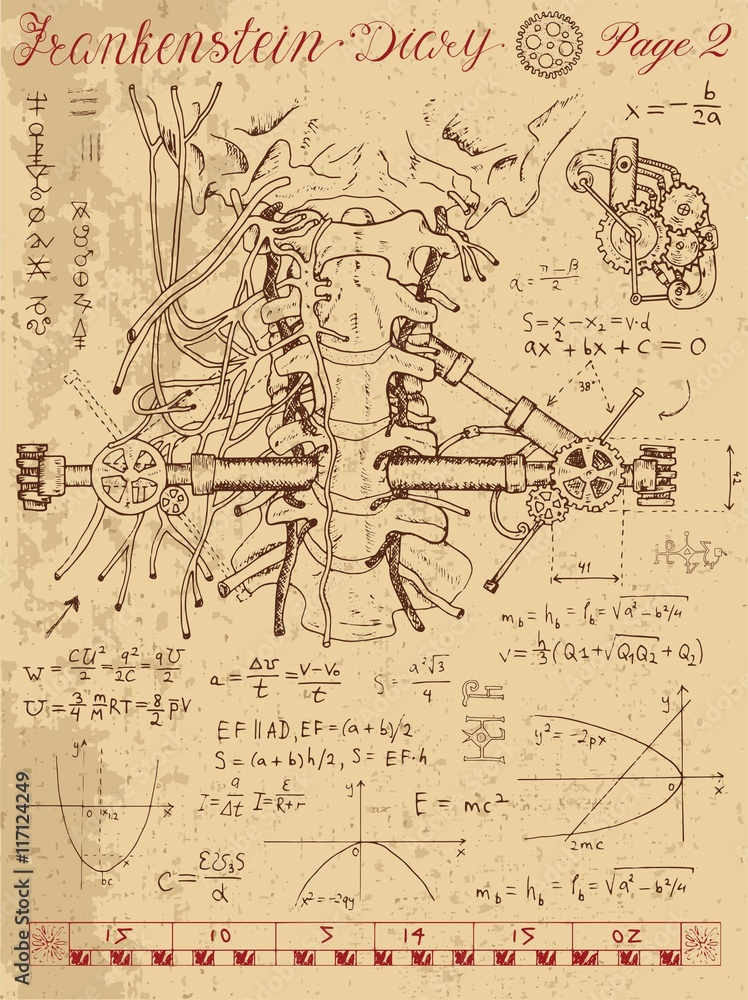 Frankenstein Diary Page 2
x = - b/2a
a = π-β/2
S = x - x₂ = v·d
ax² + bx + c = 0
38°
42
41
m_b = h_b = l_b = √a² - b²/4
V = h/3 (Q1 + √Q₁Q₂ + Q₂)
W = CU²/2 = q²/2C = qU/2
U = 3/4 m/M RT = 8/2 pV
a = Δv/t = V-V₀/t
S = a²√3/4
EF || AD, EF = (a+b)/2
S = (a+b)h/2, S = EF·h
I = q/Δt I = ε/R+r
E = mc²
y² = -2px
y
x
0
2mc
y
0
x1,2
x
bc
y
0
x
x² = -2qy
m_b = h_b = l_b = √a² - b²/4
15 10 5 14 15 02
Adobe Stock | #117124249
Adobe Stock